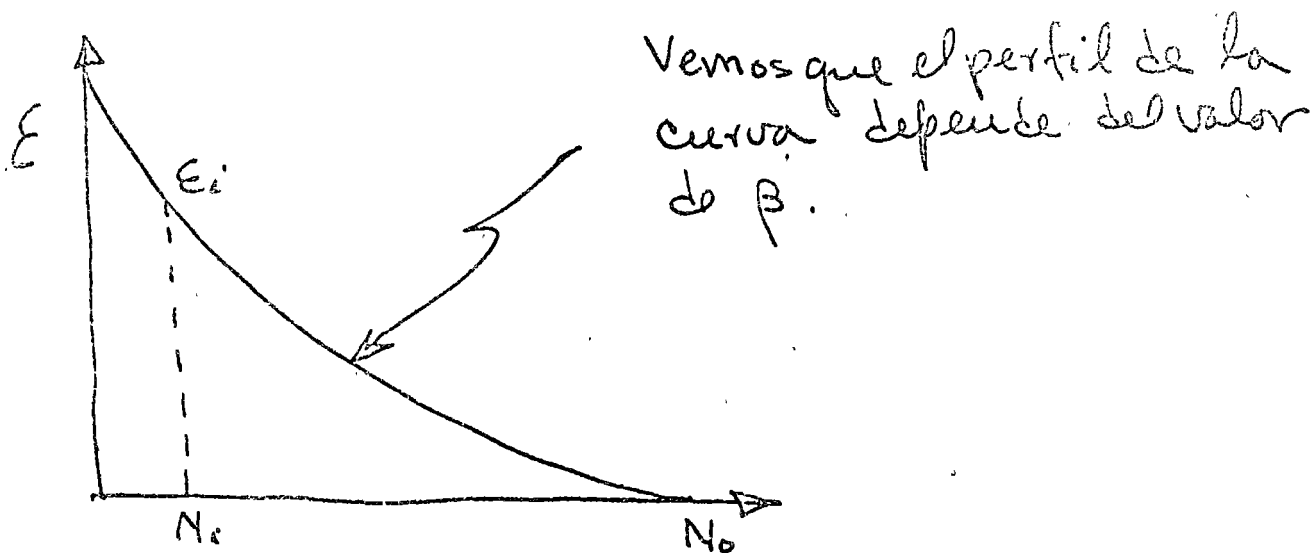 Vemos que el perfil de la
curva depende del valor
de β.
ε
εi
Ni
No